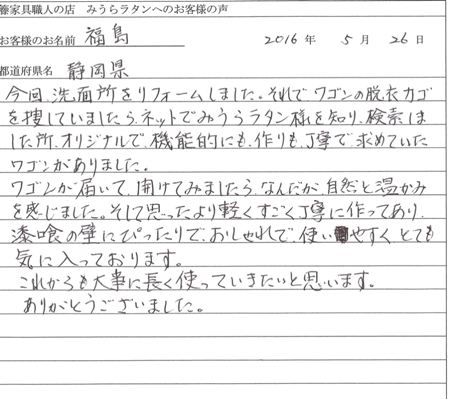 籐家具職人の店　みうらラタンへのお客様の声
お客様のお名前　福島　2016年 5月 26日
都道府県名　静岡県
今回、洗面所をリフォームしました。それでワゴンの脱衣カゴ
を捜していましたら、ネットでみうらラタン様を知り、検索しま
した所、オリジナルで、機能的にも、作りも丁寧で求めていた
ワゴンがありました。
ワゴンが届いて、開けてみましたら、なんだか自然と温かみ
を感じました。そして思ったより軽くすごく丁寧に作ってあり、
漆喰の壁にぴったりで、おしゃれで、使いやすく とても
気に入っております。
これからも大事に長く使っていきたいと思います。
ありがとうございました。